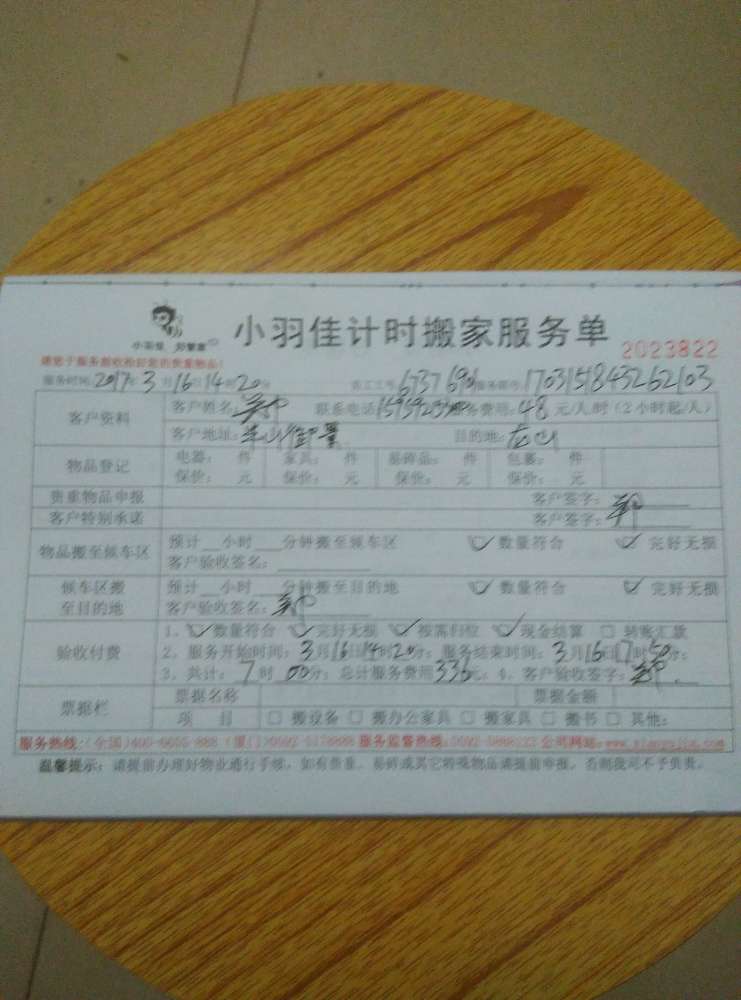 小羽佳 好管家
小羽佳计时搬家服务单
2023822
请您于服务前收拾好您的贵重物品!
服务时间:2017年3月16日14时20分 员工工号:6737 690 服务单号:170315843262103
客户资料
客户姓名:郑 联系电话 服务费用:48元/人/时(2小时起/人)
客户地址:半山御景 目的地:
物品登记
电器: 件 家具: 件 易碎品: 件 包裹: 件
保价: 元 保价: 元 保价: 元 保价: 元
贵重物品申报 客户签字:
客户特别承诺 客户签字:郑
物品搬至候车区
预计__小时__分钟搬至候车区 数量符合 完好无损
客户验收签名:
候车区搬至目的地
预计__小时__分钟搬至目的地 数量符合 完好无损
客户验收签名:郑
验收付费
1、数量符合 完好无损 按需归位 现金结算 □ 转账汇款
2、服务开始时间:3月16日14时20分;服务结束时间:3月16日17时50分;
3、共计:7时00分;总计服务费用336元;4、客户验收签字:郑
票据栏
票据名称 票据金额
项目 □ 搬设备 □ 搬办公家具 □ 搬家具 □ 搬书 □ 其他:
服务热线:(全国)400-6655-888 (厦门)0592- 服务监督热线:0592- 公司网站:www.xiaoyujia.com
温馨提示:请提前办理好物业通行手续,如有贵重、易碎或其它特殊物品请提前申报,否则我司不予负责。